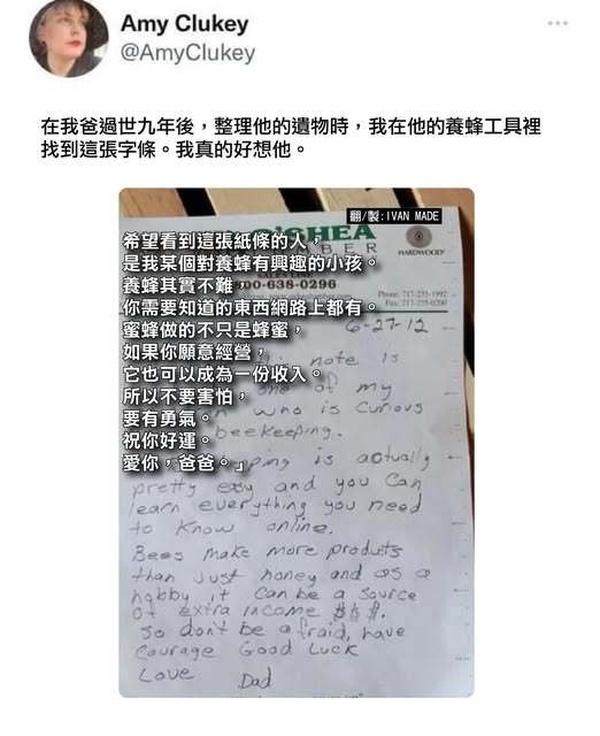 Amy Clukey
@AmyClukey
在我爸過世九年後，整理他的遺物時，我在他的養蜂工具裡
找到這張字條。我真的好想他。
翻/製:IVAN MADE
O'SHEA
希望看到這張紙條的人，
是我某個對養蜂有興趣的小孩。
養蜂其實不難，
你需要知道的東西網路上都有。
蜜蜂做的不只是蜂蜜，
如果你願意經營，
它也可以成為一份收入。
所以不要害怕，
要有勇氣。
祝你好運。
愛你，爸爸。」
HARDWOOD
00-638-0296
6-27-12
note is
of my
who is curious
beekeeping.
ping is actually
pretty easy and you can
learn everything you need
to know online.
Bees make more products
than just honey and as a
hobby it can be a source
of extra income $$$.
So don't be afraid, have
courage Good Luck
Love Dad